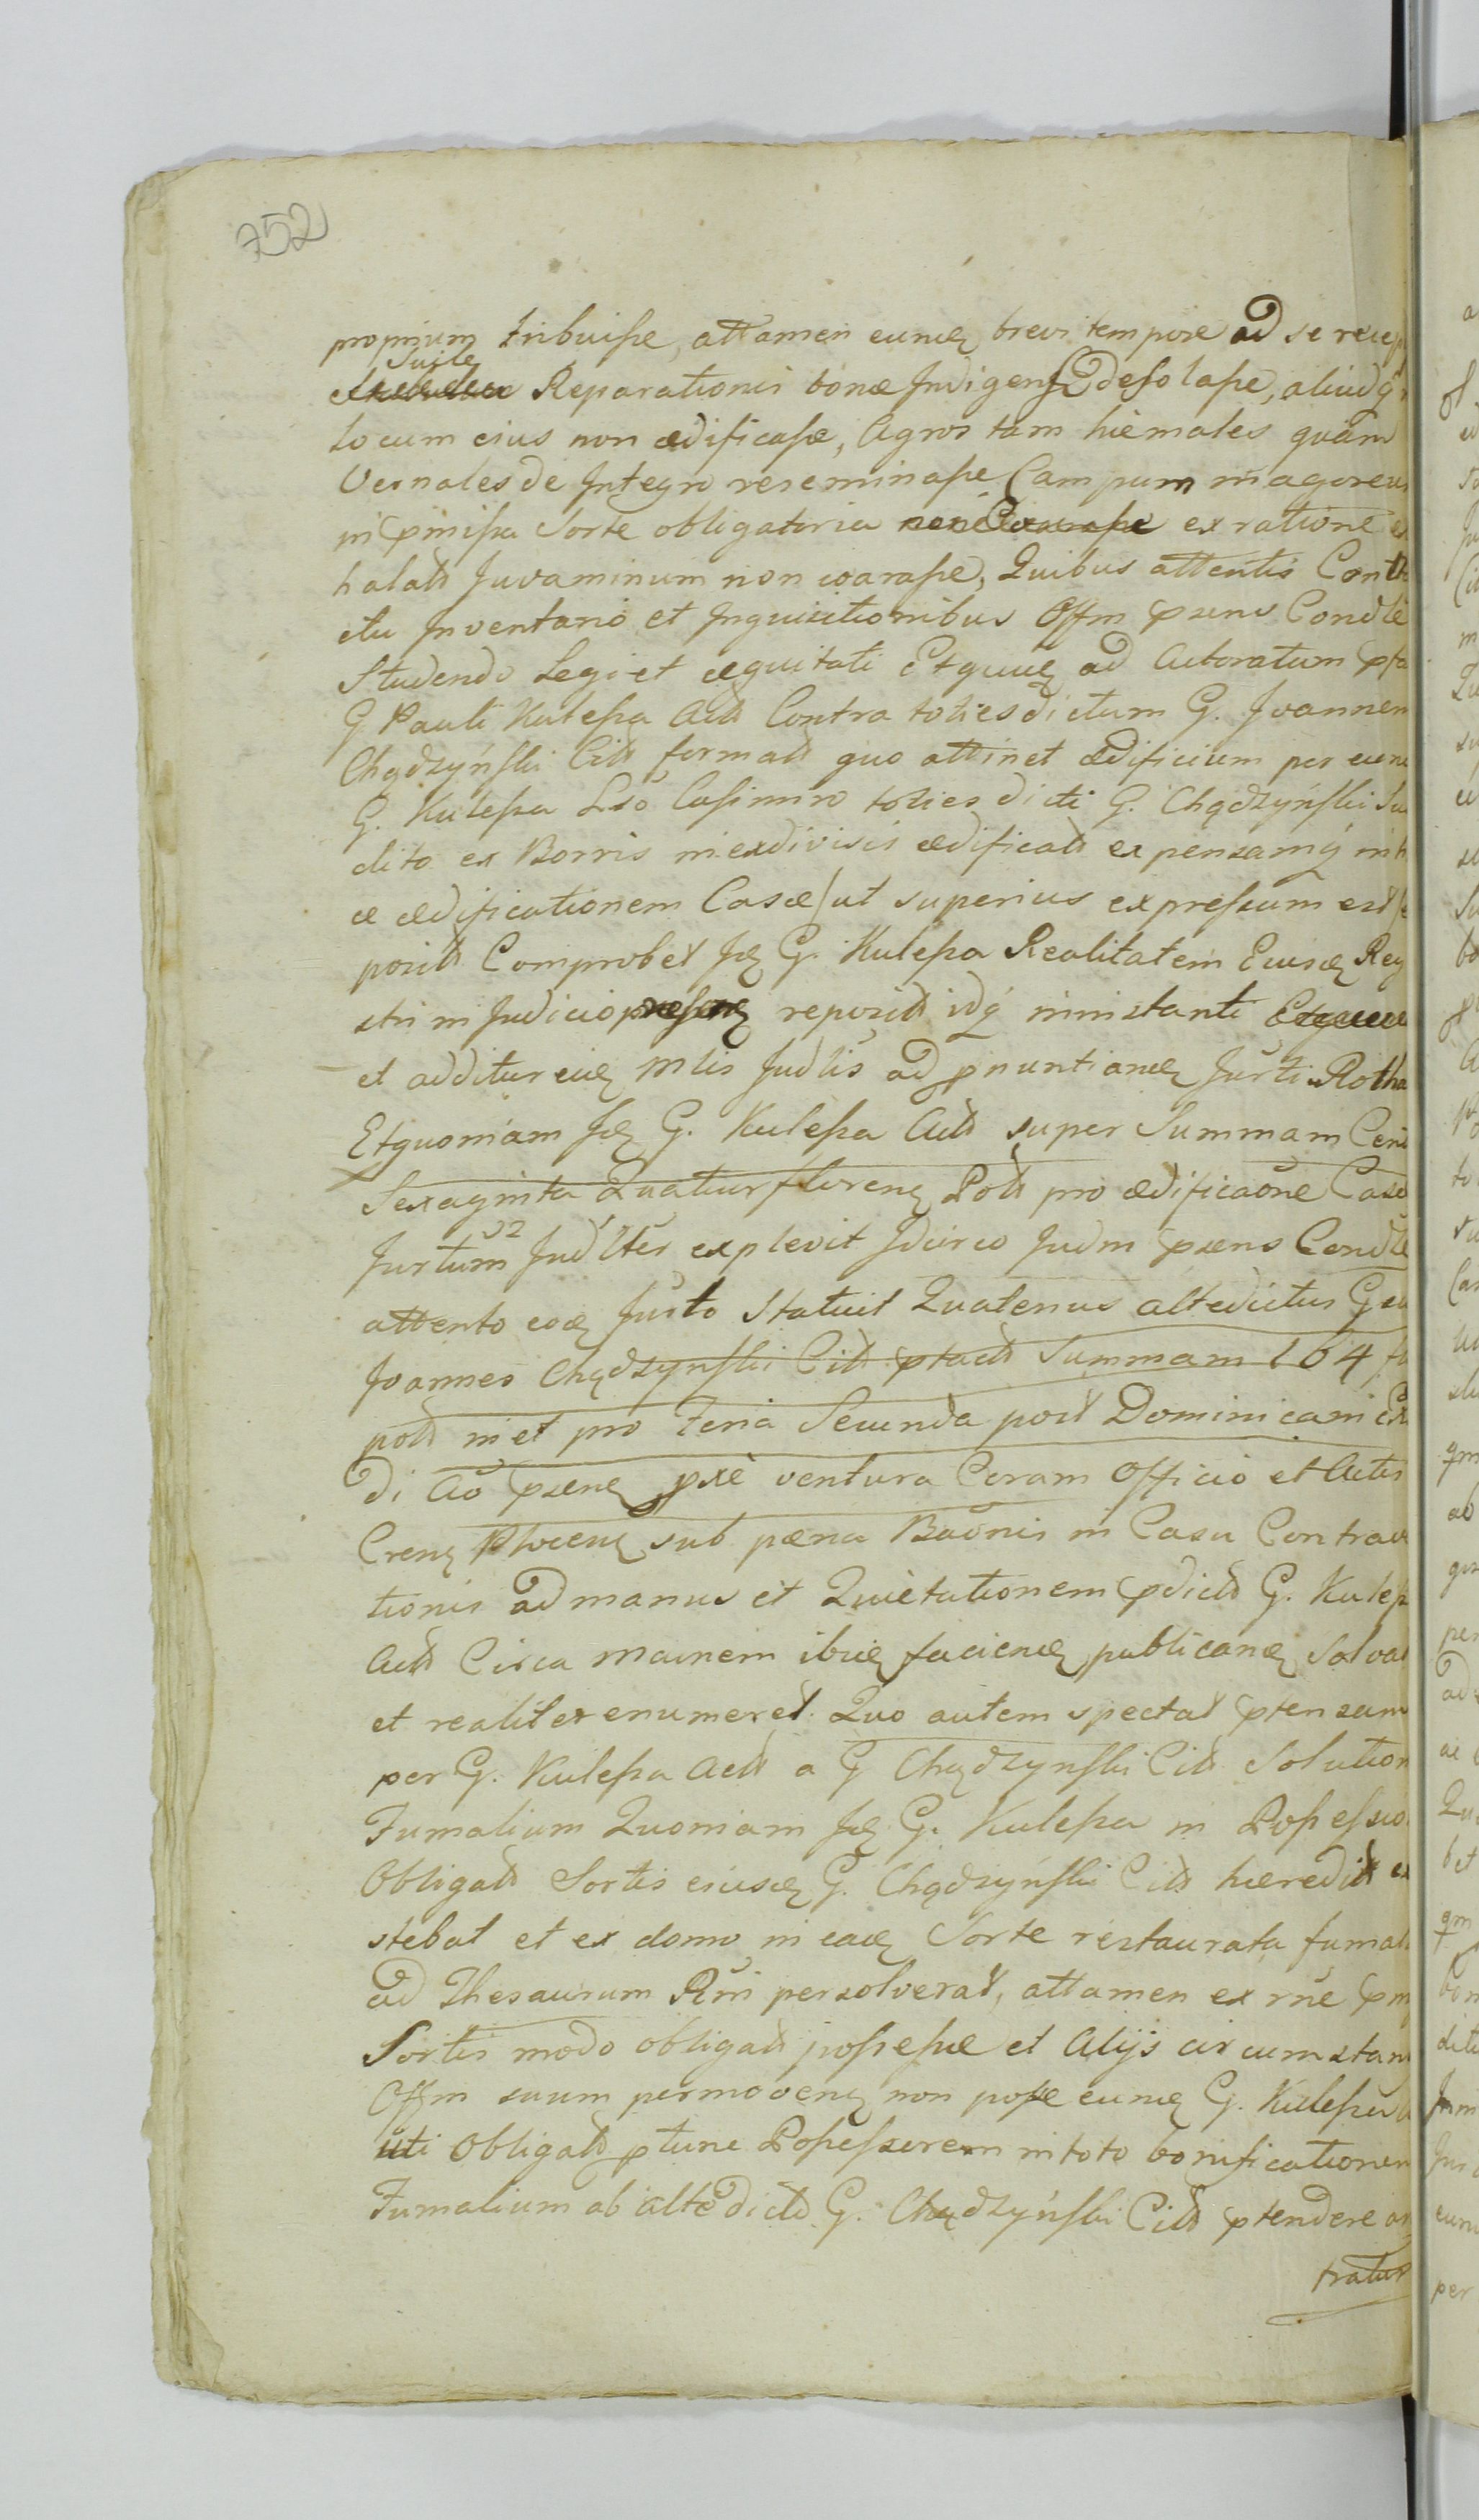 752
propnium tribuisse, attamen eumq brevi tempore ad se recep
Suile
Reparationis bonæ Indigens desolasse, aliudq
Locum eius non ædificasse, Agros tam hiemales quam
Vernales de Integro reseminasse Campum magerens
in pmissa Sorte obligatoria non Coarasse ex ratione
halats Juvaminum non coarasse, Quibus attentis Contra
ctu Inventario et Inquisitionibus Offm psens Condle
Studendo Legi et æquitati Etquuq ad Autoratum pfa
G Pauli Kulesza Acts Contra toties dictum G. Joannem
Chądzyński Cits formats quo attinet ædificium per eum
G. Kulesza Lso Casimiro toties dicti G. Chądzyński Su
dito ex Borris inexdivisis ædificats expensamq in h
æ ædificationem Casæ/ut superius expressum est
posits Comprobet Jdq G. Kulesza Realitatem Eiusdq Reg
stri in Judicio presenq reposits idq ininstanti
et additur eiq Mlis Judlis ad pnuntiandq Jurti Rotha
Etquoniam Jdq G. Kulesza Acts super Summam Cent
Sexaginta Quatuor florenq Polts pro ædificaone Casæ
Jurtum Judlter explevit Jdcirco Judm psens Condle
attento eodq Jurto Statuit Quatenus altedictus Gsu
Joannes Chądzyński Cits ptacts Summam 164 fl
polts in et pro Feria Secunda post Dominicam Exau
di Ao psenq pxe ventura Coram Officio et Actis
Crenq Plocenq sub pæna Baonis in Casu Contrave
tionis ad manus et Quietationem pdicts G. Kulesz
Acts Circa Mamem ibiq facienq publicanq Solvat
et realiter enumeret. Quo autem spectat ptensam
per G. Kulesza Acts a G Chądzyński Cits Solution
Fumalium Quoniam Jdq G. Kulesza in Possessio
Obligats Sortis eiusdq G. Chądzyński Cits hæredits ex
stebat et ex domo in eadq Sorte restaurata fumal
ad Thesaurum Rni persolverat, attamen ex rne pm
Sortis modo obligats possessæ et Alijs circumstan
Offm suum permovenq non posse eumq G. Kulesza
uti Obligats ptunc Possessorem in toto bonificationem
Fumalium ab altedicto G. Chądzyński Cits ptendere ar
tratur